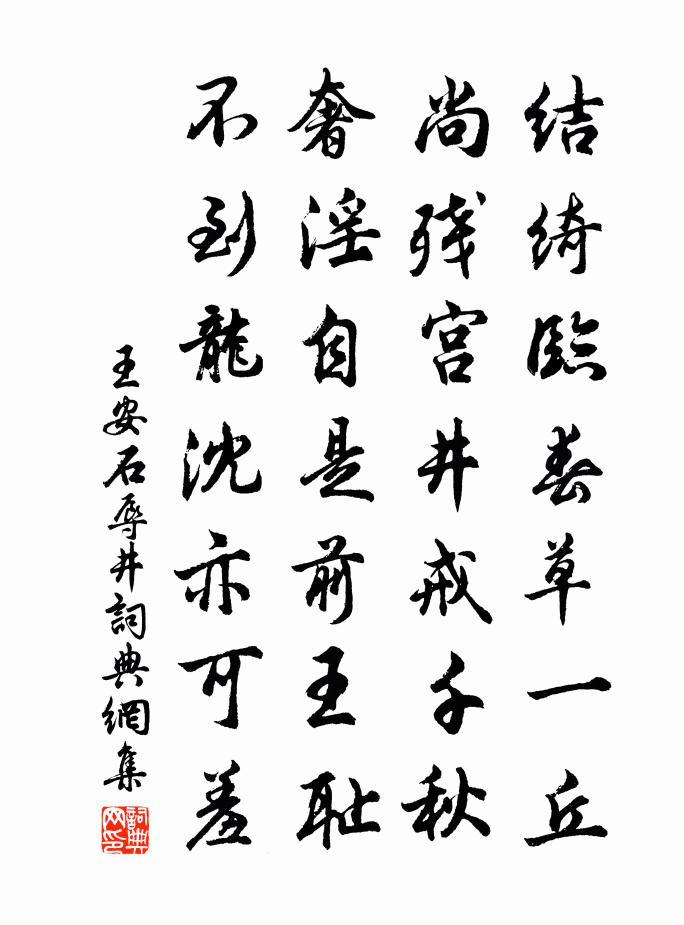 结绮臨春草一丘
尚残宫井戒千秋
奢淫自是前王耻
不到龍沈亦可羞
王安石辱井詞典網集
詞典
网印